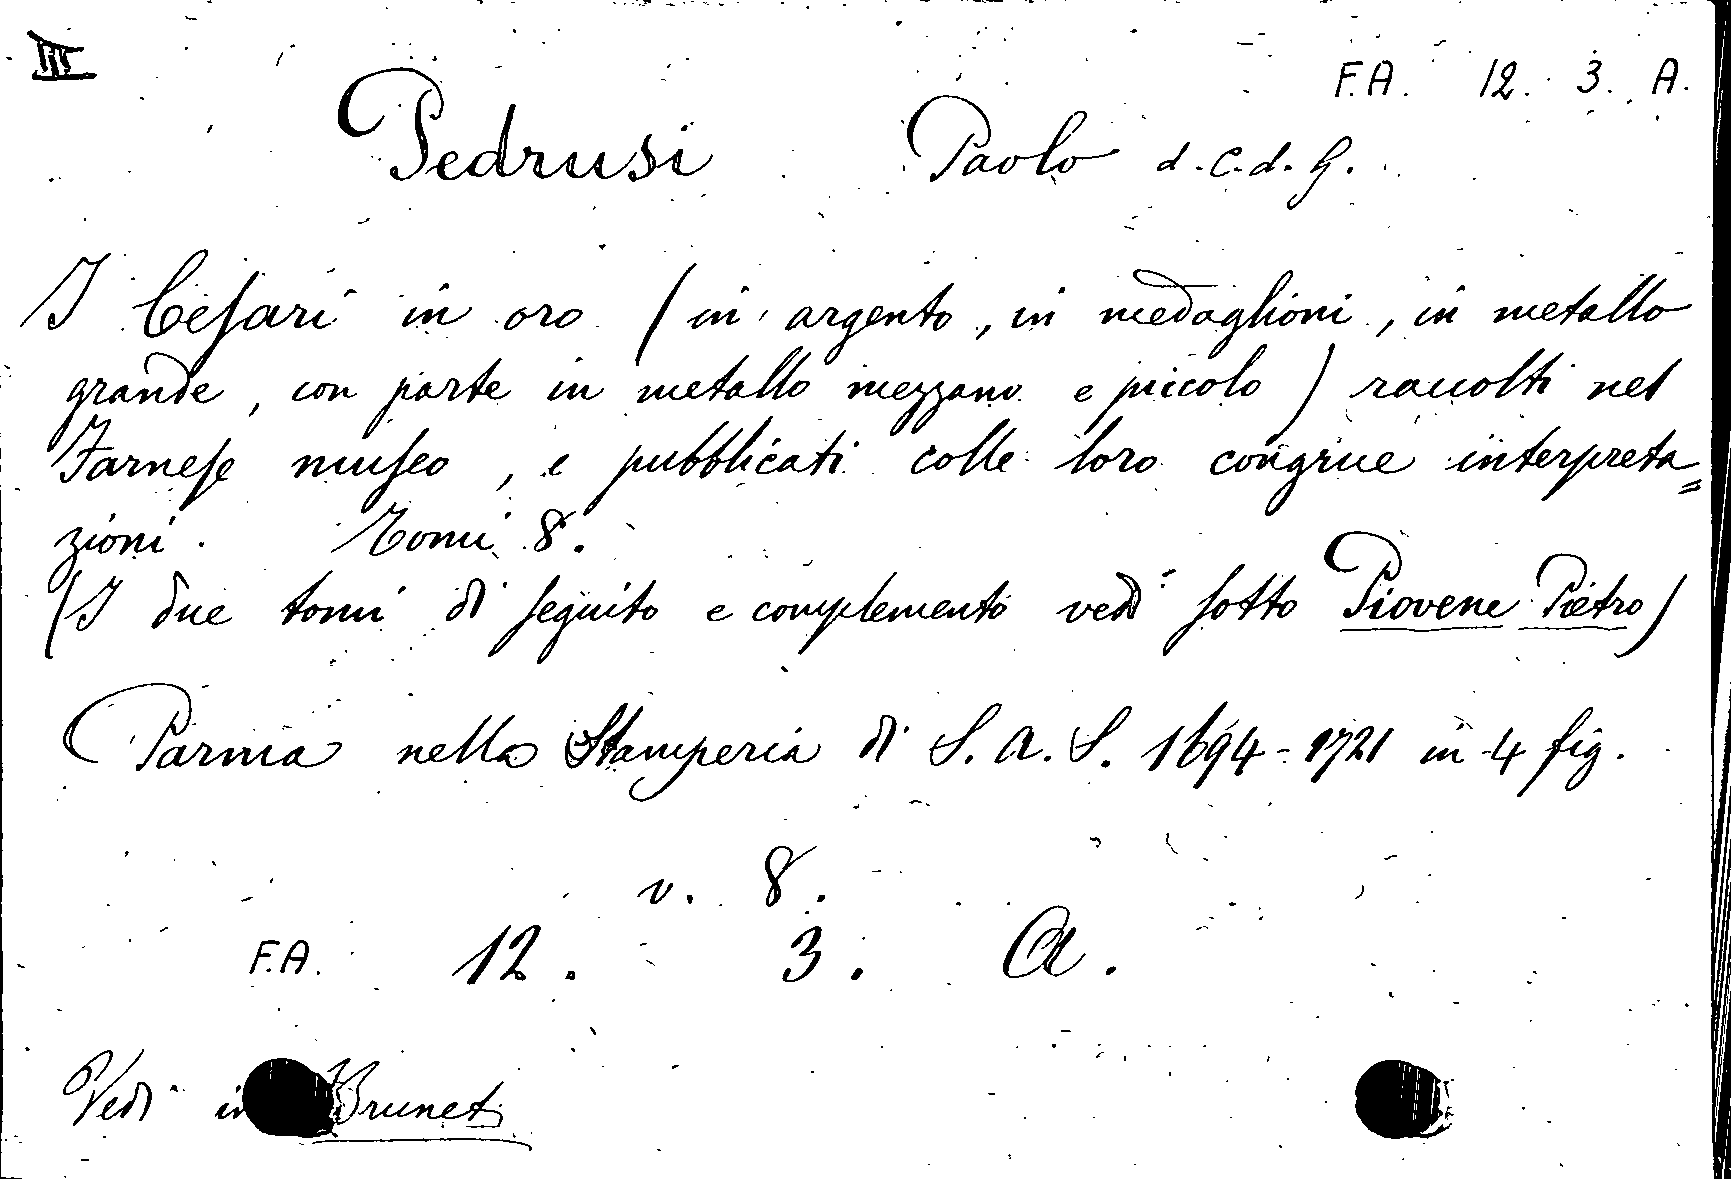 III
F.A. 12. 3. A.
Pedrusi Paolo d. C. d. G.
I Cesari in oro (in argento, in medaglioni, in metallo
grande, con parte in metallo mezzano e piccolo) raccolti nel
Farnese museo, e pubblicati colle loro congrue interpreta=
zioni. Tomi 8.
(I due tomi di seguito e complemento vedi sotto Piovene Pietro)
Parma nella Stamperia di S. A. S. 1694-1721 in 4 fig.
v. 8.
F.A. 12. 3. A.
Vedi in Brunet